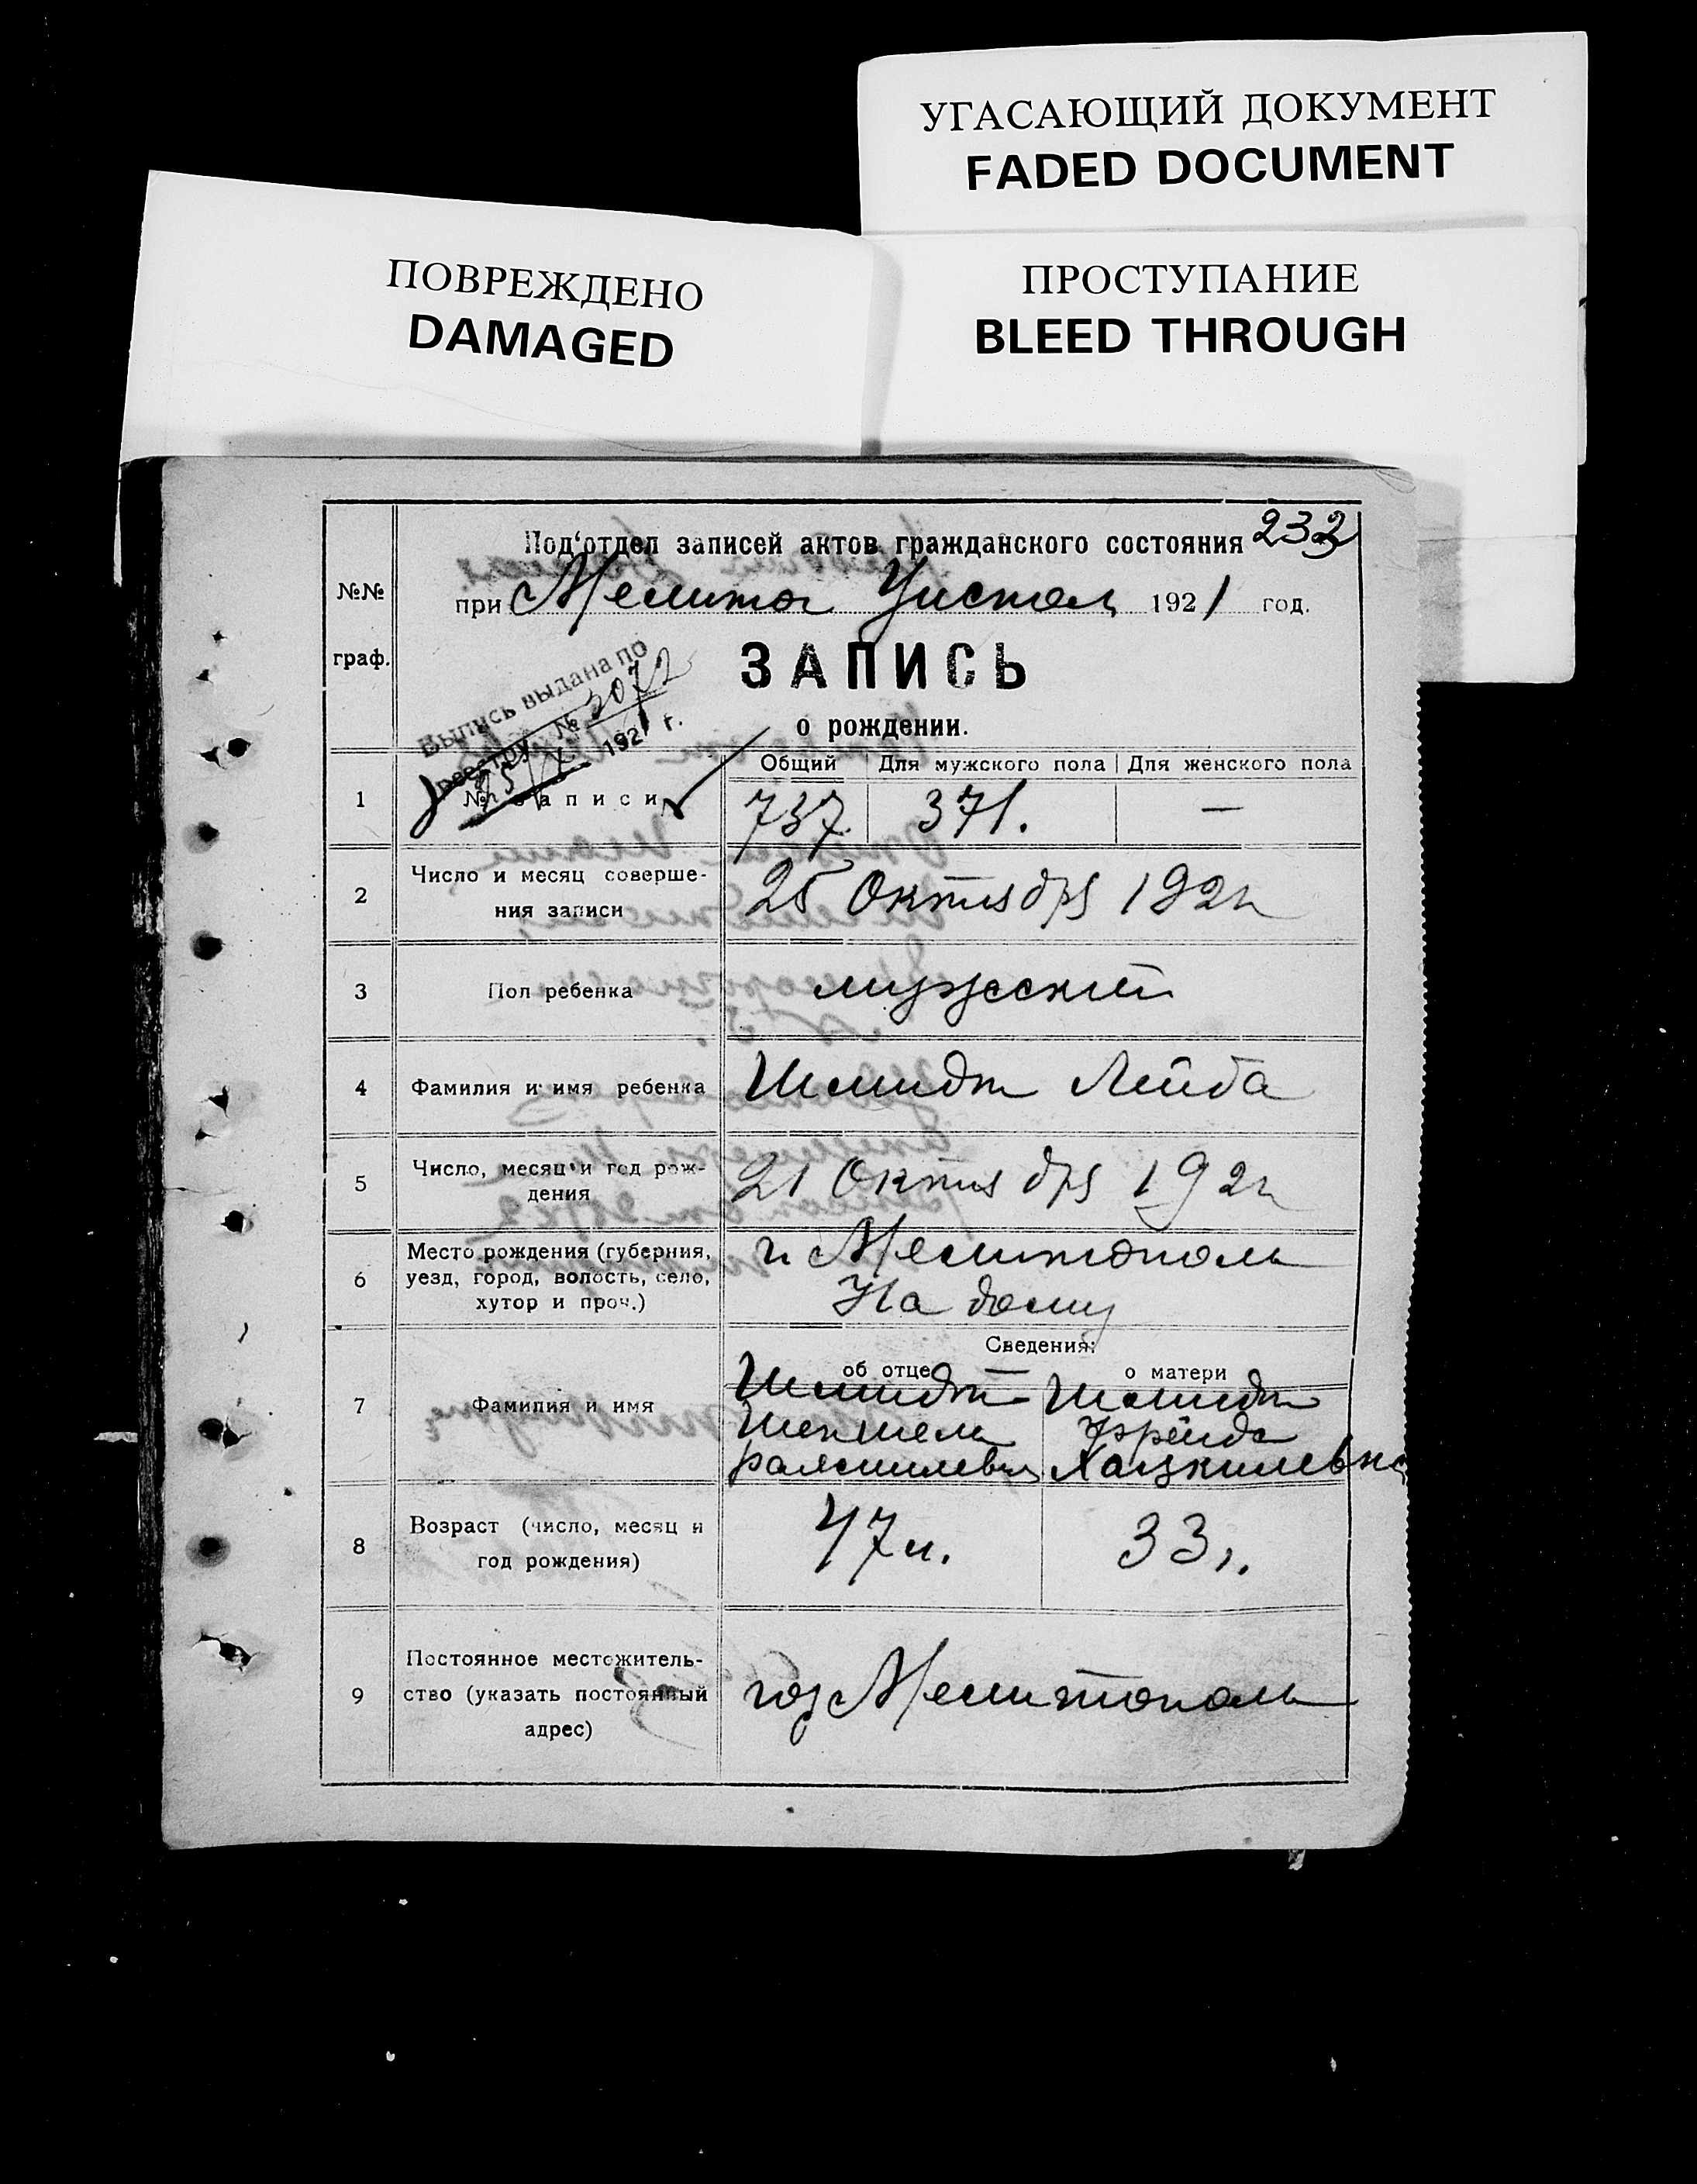 УГАСАЮЩИЙ ДОКУМЕНТ
FADED DOCUMENT
ПОВРЕЖДЕНО
DAMAGED
ПРОСТУПАНИЕ
BLEED THROUGH
232
Под'отдел записей актов гражданского состояния
№№ граф.
при Мелитоп 1921 год.
ЗАПИСЬ
о рождении.
Выпись выдана по
реестру № 2072
192 г.
Общий Для мужского пола Для женского пола
1 № записи 737. 371. —
2 Число и месяц соверше-
ния записи 25 Октября 192
3 Пол ребенка мужской
4 Фамилия и имя ребенка Шмидт Лейба
5 Число, месяц и год рож-
дения 21 Октября 192
6 Место рождения (губерния,
уезд, город, волость, село,
хутор и проч.)
г. Мелитополь
На дому
Сведения:
об отце о матери
7 Фамилия и имя
Шмидт Шмидт
Фрейда
Хацкилевна
8 Возраст (число, месяц и
год рождения) 47 л. 33 г.
9 Постоянное местожитель-
ство (указать постоянный
адрес)
гор Мелитополь